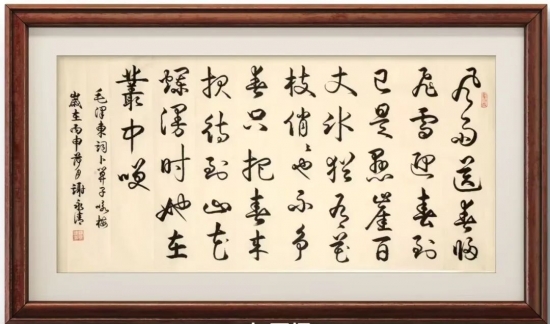 风雨送春歸
飛雪迎春到
已是懸崖百
丈冰猶有花
枝俏也不争
春只把春来
报待到山花
爛漫时她在
叢中咲
毛泽東词卜算子咏梅
歲在丙申月谢永清